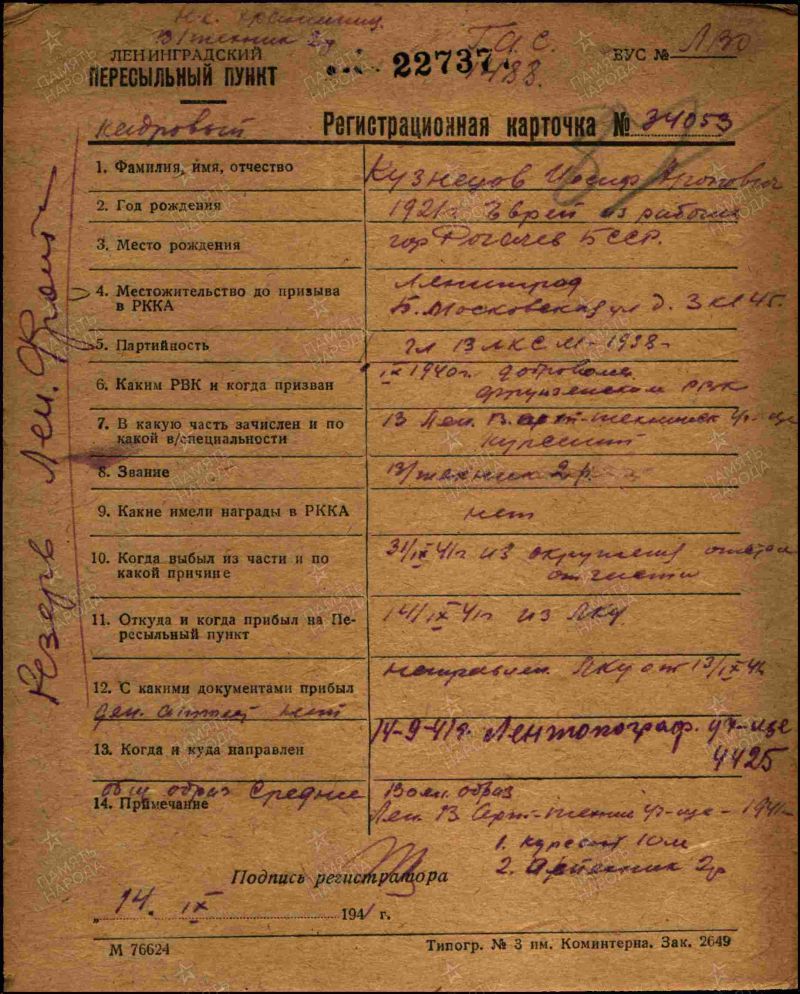 В/техник 2р
ЛЕНИНГРАДСКИЙ
ПЕРЕСЫЛЬНЫЙ ПУНКТ
22737
ВУС №
кадровый
Регистрационная карточка № 34053
Резерв Лен. Фронта
1. Фамилия, имя, отчество
Кузнецов Иосиф Аронович
2. Год рождения
1921г. Еврей из рабочих
3. Место рождения
гор Рогачев БССР.
4. Местожительство до призыва в РККА
Ленинград
Б. Московская ул д. 3 кв 45.
5. Партийность
чл ВЛКСМ - 1938 -
6. Каким РВК и когда призван
IX 1940г. добровольно
Фрунзенским РВК
7. В какую часть зачислен и по какой в/специальности
В Лен. В. арт-техническ уч-ще
курсант
8. Звание
В/техник 2р.
9. Какие имели награды в РККА
нет
10. Когда выбыл из части и по какой причине
31/IX 41г из окружения отстал
от части
11. Откуда и когда прибыл на Пересыльный пункт
14/IX 41г из ЛКУ
12. С какими документами прибыл
направлен. ЛКУ от 13/IX 41
ден. аттест нет
13. Когда и куда направлен
14-9-41г. Лентопограф. уч-ще
4425
общ образ Средние
14. Примечание
Воен. образ
Лен В Арт-техник уч-ще - 1941
1. курсант 10м
2. Артехник 2р
Подпись регистратора
„ 14. IX 1941 г.
М 76624
Типогр. № 3 им. Коминтерна. Зак. 2649
ПАМЯТЬ НАРОДА